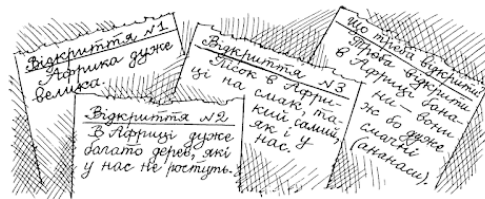 Відкриття №1
Африка дуже
велика.
Відкриття №2
В Африці дуже
багато дерев, які
у нас не ростуть.
Відкриття №3
Пісок в Афри-
ці на смак, та-
кий самий,
як і у
нас.
Що треба відкрити
Треба відкрити
в Африці бана-
ни — вони
ж бо дуже
смачні
(ананаси).